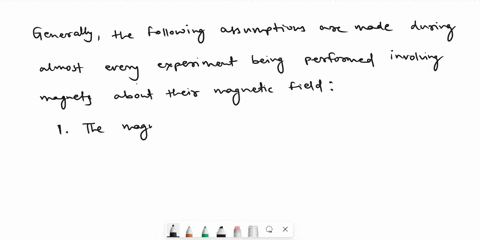 Generally, the following assumptions are made during
almost every experiment being performed involving
magnets about their magnetic field :
1. The mag